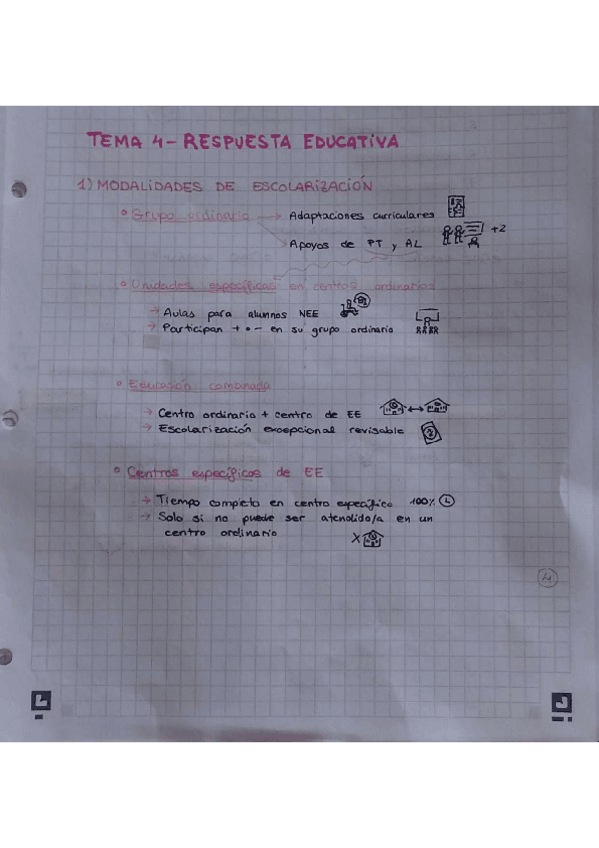 TEMA 4- RESPUESTA EDUCATIVA
1) MODALIDADES DE ESCOLARIZACIÓN
• Grupo ordinario → Adaptaciones curriculares
→ Apoyos de PT y AL +2
• Unidades específicas en centros ordinarios
→ Aulas para alumnos NEE
→ Participan + o - en su grupo ordinario
• Educación combinada
→ Centro ordinario + centro de EE
→ Escolarización excepcional revisable
• Centros específicos de EE
→ Tiempo completo en centro específico 100%
→ Solo si no puede ser atendido/a en un
centro ordinario X
4